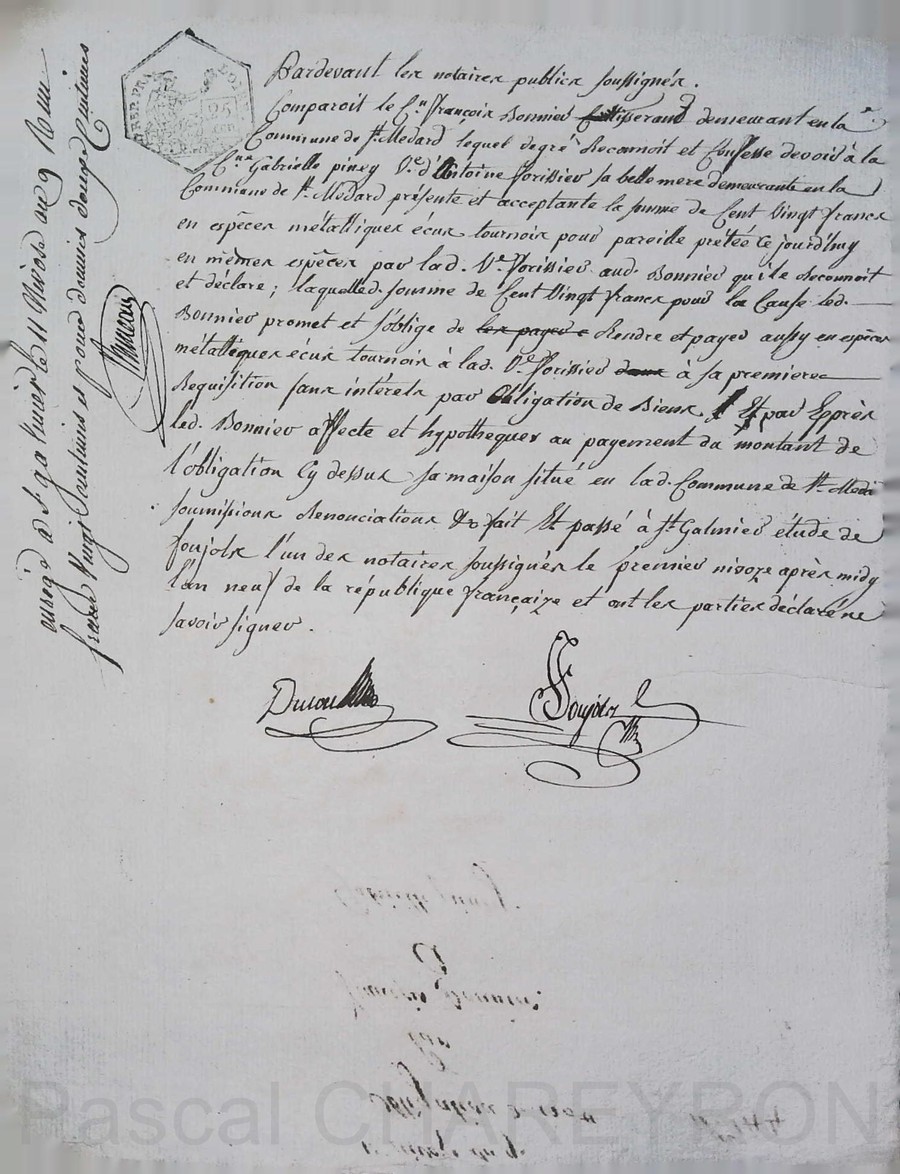 Pardevant les notaires publics soussignés.
Comparoit le C.en françois Bonnier tisserand demeurant en la
Commune de St. Médard lequel de gré Reconnoit et Confesse devoir à la
C.nne Gabrielle piney V.e d'Antoine Forissier sa belle mere demeurante en la
Commune de St. Médard présente et acceptante la somme de Cent Vingt francs
en espèces métalliques écus tournois pour pareille prêtée Ce jourd'huy
en mêmes espèces par lad. V.e Forissier aud. Bonnier qui le Reconnoit
et déclare ; laquelle d. somme de Cent Vingt francs pour la Cause led.
Bonnier promet et s'oblige de Rendre et payer aussy en espèces
métalliques écus tournois à lad. V.e Forissier à sa premiere
Requisition sans intérêts par Obligation de Biens, Et par Exprès
led. Bonnier affecte et hypotheques au payement du montant de
l'obligation Cy dessus sa maison situé en lad. Commune de St. Medard
soumissions Renonciations &c fait Et passé à St. Galmier étude de
Soujols l'un des notaires soussignés le premier nivoze après midy
l'an neuf de la république françaize et ont les parties déclaré ne
savoir signer.
Soujols
enregé à St. galmier le 11 Nivôse an 9 Reçu
francs Vingt Centimes et pour dixmes douze Centimes
25
françois Bonnier
par
Obligation
Pascal CHAREYRON